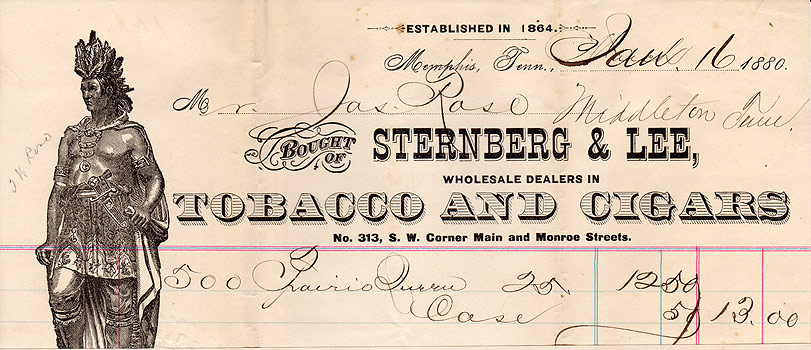 ESTABLISHED IN 1864.
Memphis, Tenn., Jan. 16 1880.
Mr. Jas. Rose Middleton Tenn.
BOUGHT OF STERNBERG & LEE,
WHOLESALE DEALERS IN
TOBACCO AND CIGARS
No. 313, S. W. Corner Main and Monroe Streets.
500 Prairie Queen 25 12 50
Case 50 13.00